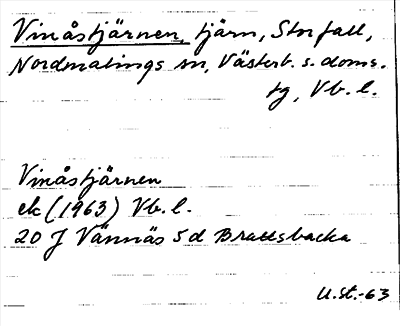 Vinåstjärnen, tjärn, Storfall,
Nordmalings sn, Västerb. s. doms.
tg, Vb. l.
Vinåstjärnen
ek (1963) Vb. l.
20 J Vännäs 5d Brattsbacka
U.st.-63